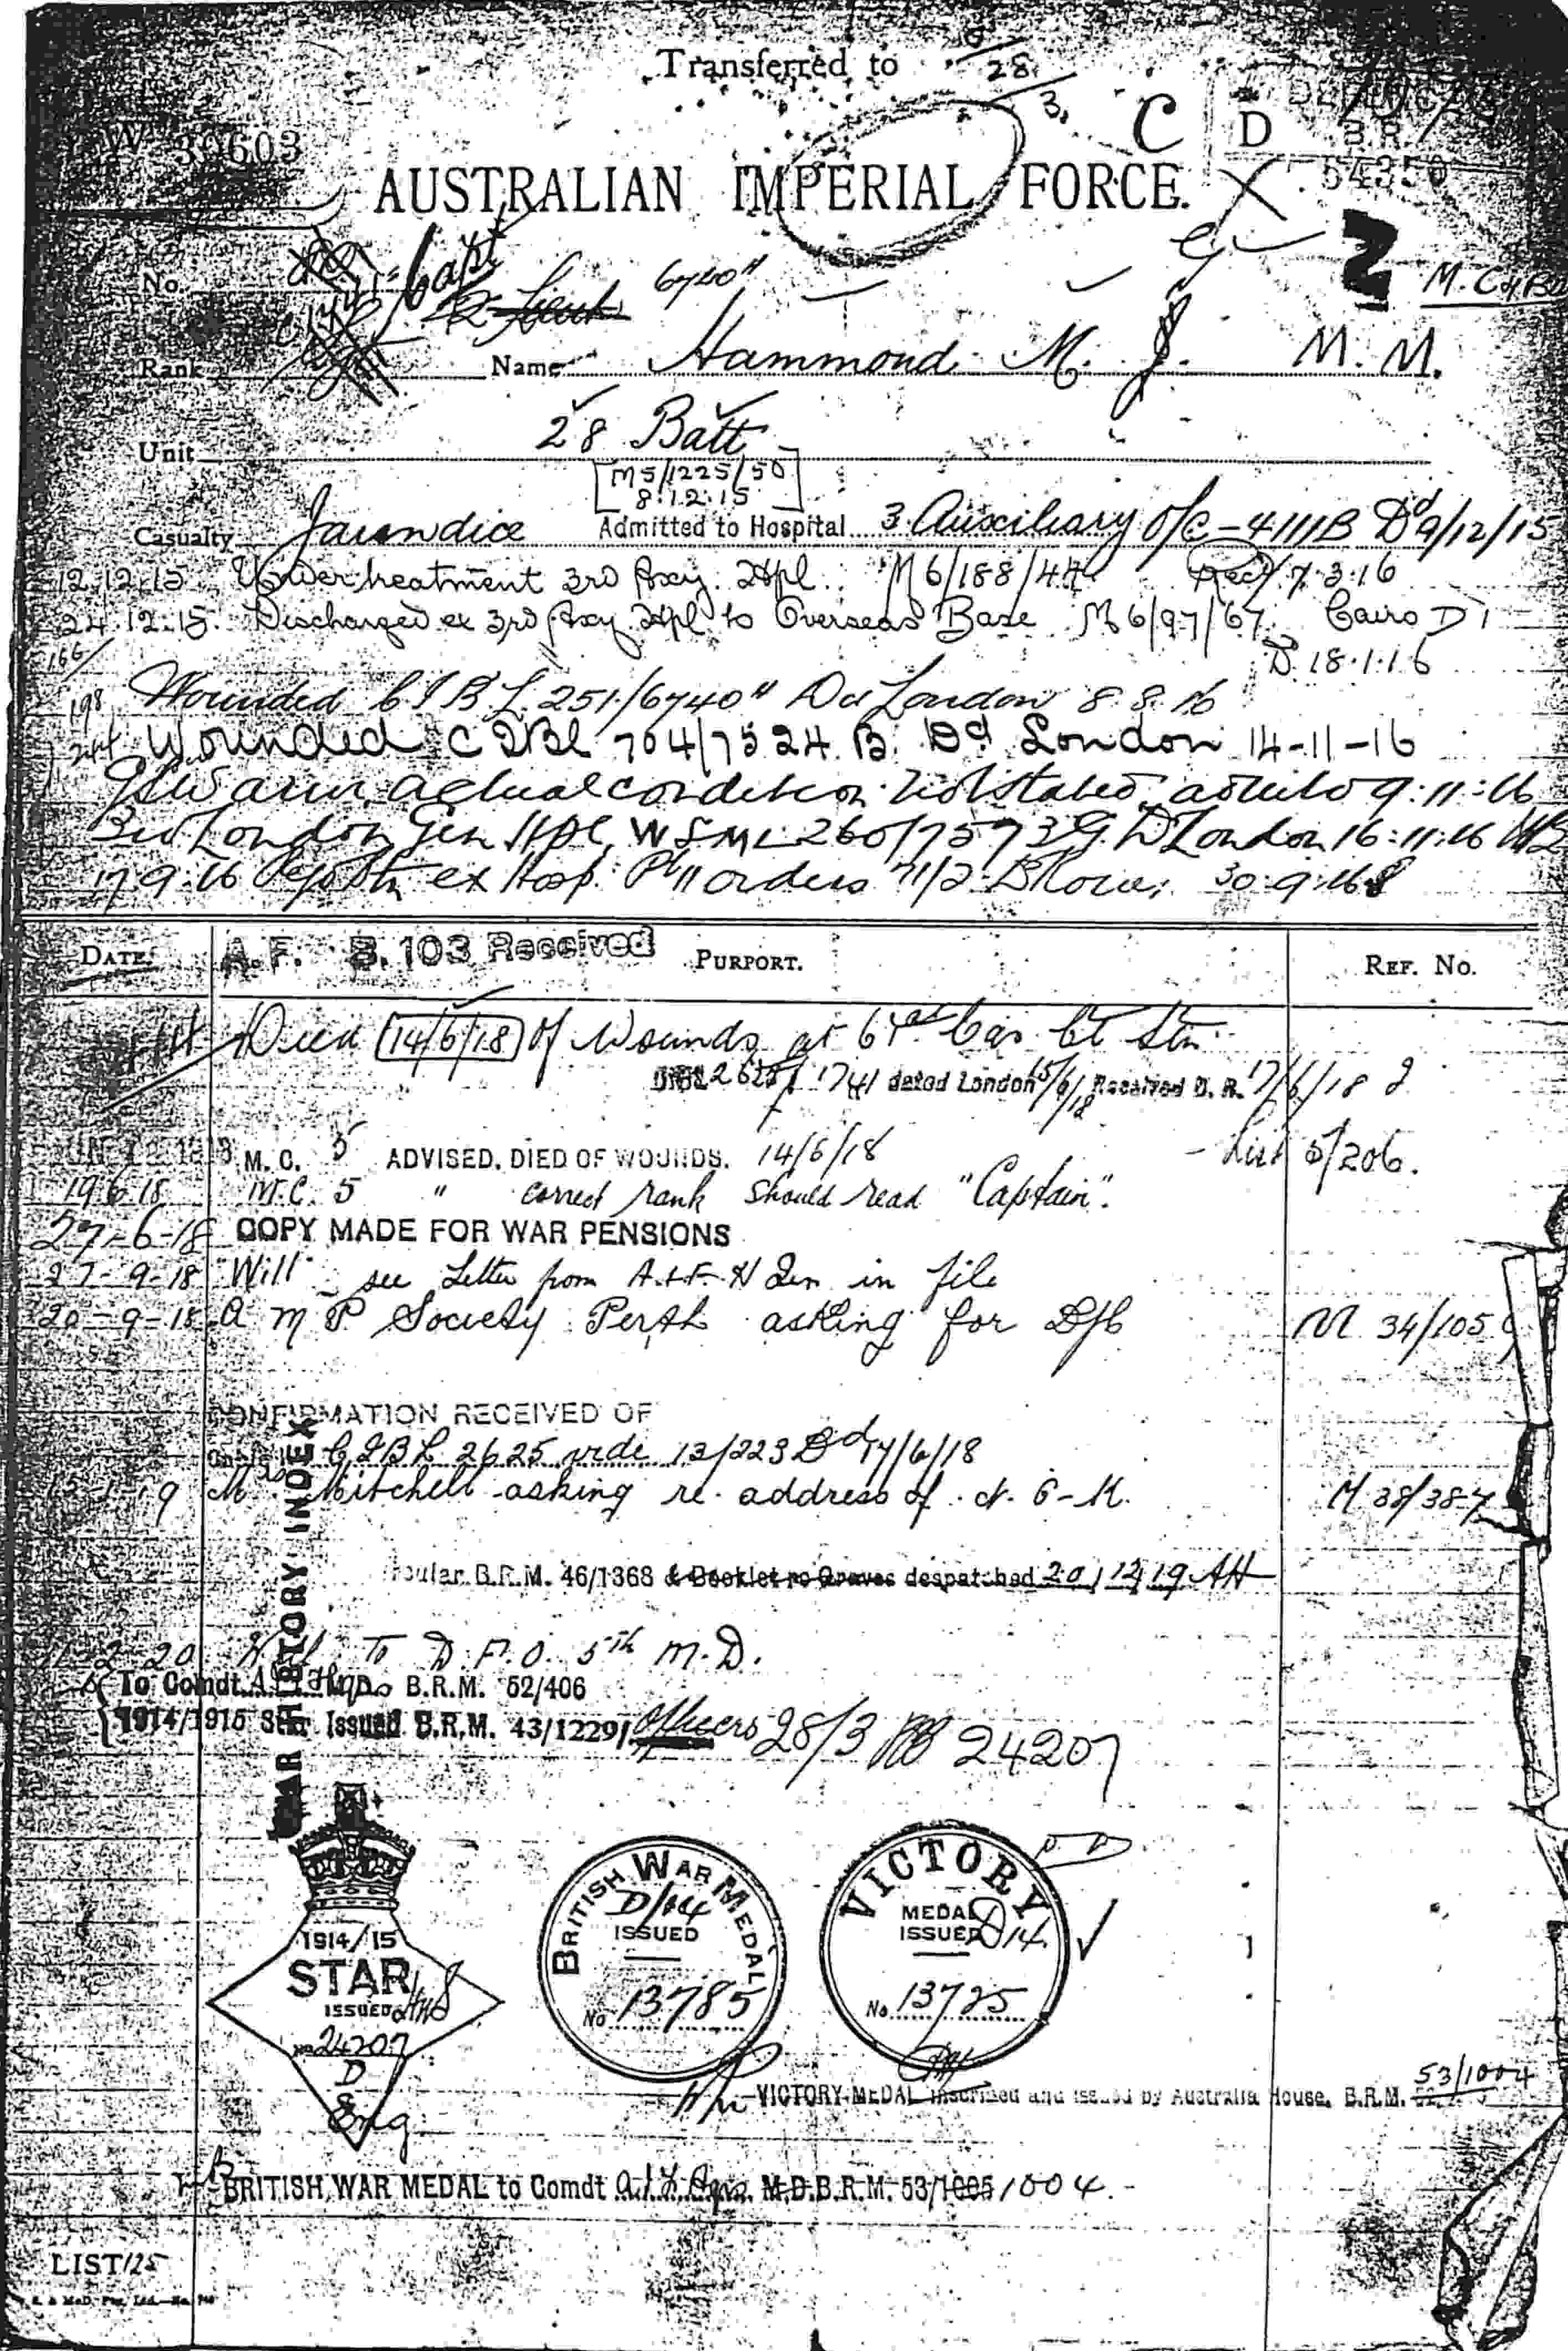 Transferred to
28
3.
C
D
B.R.
54350
30603
AUSTRALIAN IMPERIAL FORCE.
No.
Capt
2 Lieut
6740"
M.C. & Bar
Rank
Sgt
Name Hammond M. J. M.M.
Unit 28 Batt
M5/1225/50
8.12.15
Casualty Jaundice Admitted to Hospital 3 Auxiliary O/C-4111B Dd 9/12/15
12.12.15 Under treatment 3rd Axy. Hpl. M6/188/44 Rec 7.3.16
24.12.15. Discharged ex 3rd Axy Hpl to Overseas Base M6/97/67 Cairo
D. 18.1.16
166
198 Wounded C I B L 251/6740" Dd London 8.8.16
Wounded C I B L 704/7524 B. Dd London 14-11-16
GSW arm, actual condition not stated, admitted 9:11:16
3rd London Gen Hpl, W S M L 260/7573 G. D London 16:11:16
17.9.16 ex Hosp. Pt II orders 71/2 30.9.16
DATE. A.F. B.103 Received PURPORT. REF. NO.
Died 14/6/18 of Wounds at 61st Cas Cl Stn.
2625/1741 dated London 15/6/18 Received D.R. 17/6/18
M.C. 5 ADVISED. DIED OF WOUNDS. 14/6/18 - List 5/206.
19.6.18 M.C. 5 " correct rank should read "Captain".
27-6-18 COPY MADE FOR WAR PENSIONS
27-9-18 "Will" see Letter from A.I.F. in file
20-9-18 A M P Society Perth asking for D/C M 34/105
CONFIRMATION RECEIVED OF
Cable C I B L 2625 vide 13/223 Dd 17/6/18
19 Mitchell asking re. address of N. O-K. M 38/387
B.R.M. 46/1368 & Booklet re Graves despatched 20/12/19 AH
2-20 To D.F.O. 5th M.D.
To Comdt A.I.F. Hqrs B.R.M. 52/406
1914/1915 Star Issued B.R.M. 43/1229/ Officers 28/3 24207
WAR HISTORY INDEX
1914/15
STAR
ISSUED
No 24207
D
Eng
BRITISH WAR MEDAL
D/14
ISSUED
No 13785
VICTORY
MEDAL
ISSUED D14
No 13725
VICTORY MEDAL inscribed and issued by Australia House. B.R.M. 53/1004
BRITISH WAR MEDAL to Comdt A.I.F. Hqrs. M.D.B.R.M. 53/1005 1004.
LIST 125